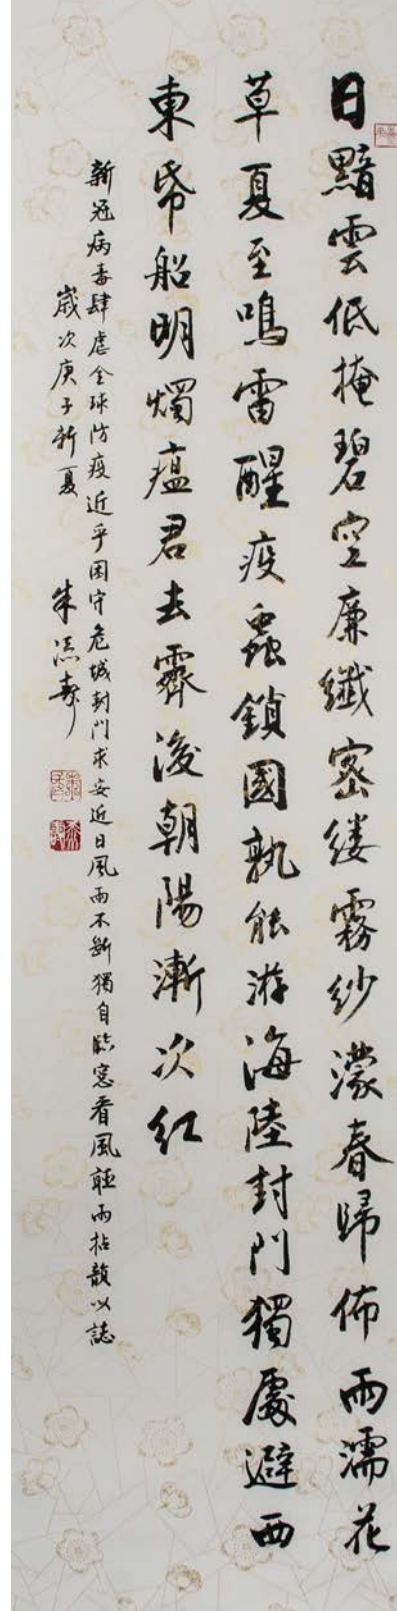 日黯雲低掩碧空廉纖密縷霧紗濛春歸佈雨濡花
草夏至鳴雷醒疫蟲鎖國孰能游海陸封門獨處避西
東帋船明燭瘟君去霽後朝陽漸次紅
新冠病毒肆虐全球防疫近乎困守危城封門求安近日風雨不斷獨自臨窓看風聽雨拈韻以誌
歲次庚子新夏 朱添壽